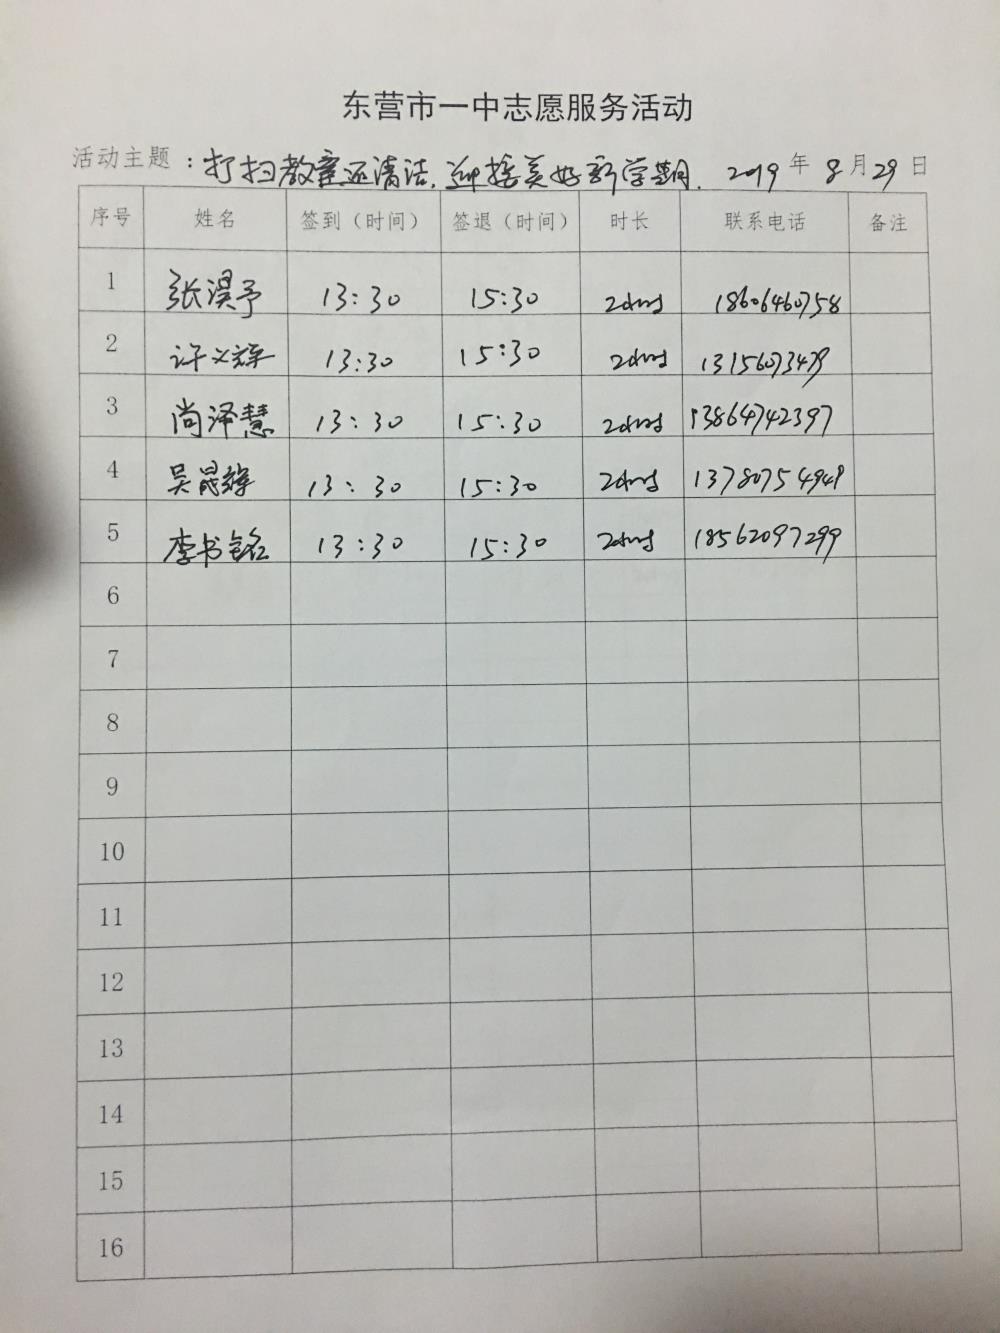 东营市一中志愿服务活动
活动主题：打扫教室还清洁，迎接美好新学期. 2019 年 8 月 29 日
序号 姓名 签到（时间） 签退（时间） 时长 联系电话 备注
1 张淏予 13:30 15:30 2 18606460758
2 许义辉 13:30 15:30 2
3 尚泽慧 13:30 15:30 2 13864742397
4 吴晟辉 13:30 15:30 2 13780754949
5 李书铭 13:30 15:30 2 18562097299
6
7
8
9
10
11
12
13
14
15
16